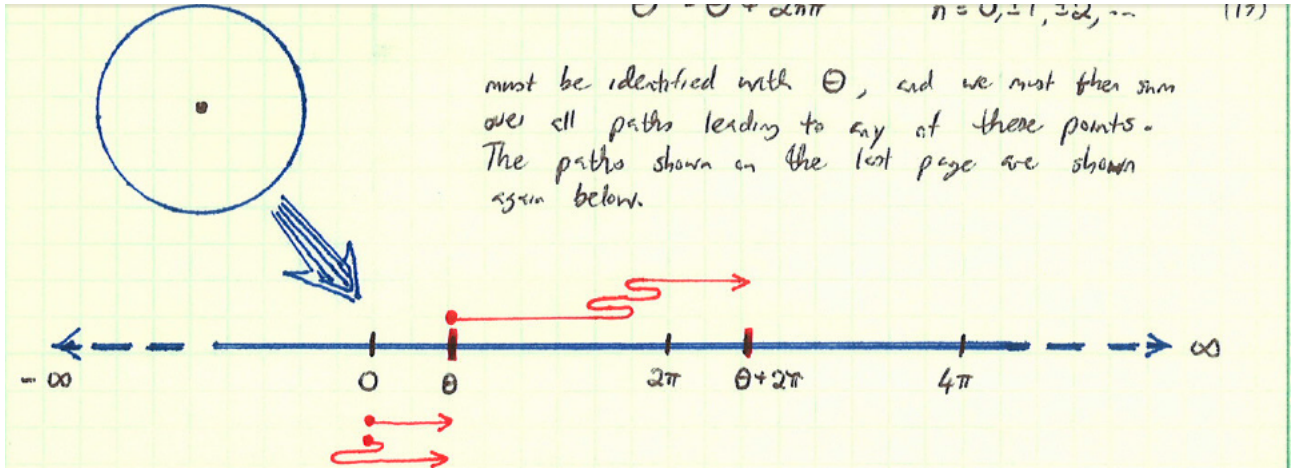 n = 0, ±1, ±2, ...
must be identified with Θ, and we must then sum
over all paths leading to any of these points.
The paths shown on the last page are shown
again below.
∞
-∞ 0 θ 2π θ+2π 4π